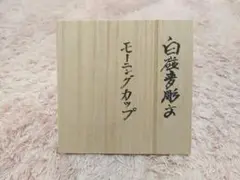 白磁麦彫文
モーニングカップ